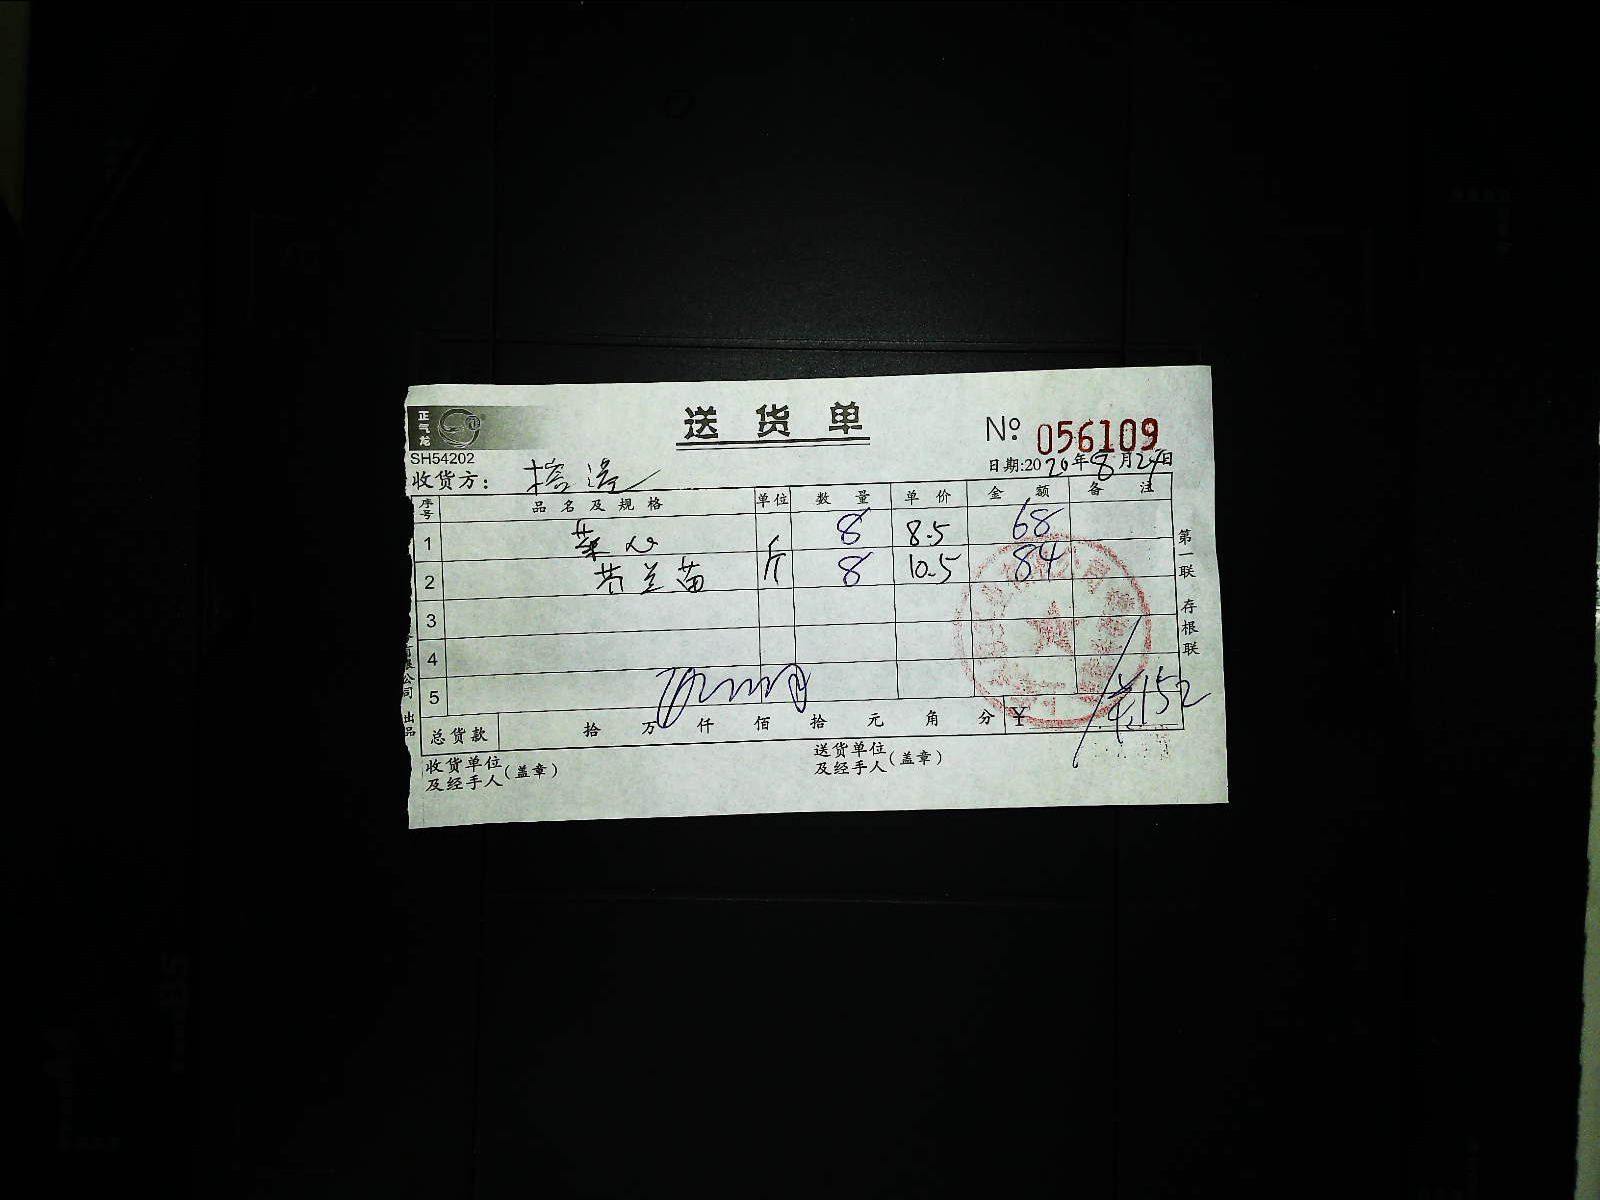 正气龙
送货单
№ 056109
SH54202
日期:2020年8月24日
收货方:
序号 品名及规格 单位 数量 单价 金额 备注
1 菜心 斤 8 8.5 68
2 芥兰苗 斤 8 10.5 84
3
4
5
总货款 拾 万 仟 佰 拾 元 角 分 ¥ 152
收货单位及经手人(盖章) 送货单位及经手人(盖章)
第一联 存根联
有限公司 出品